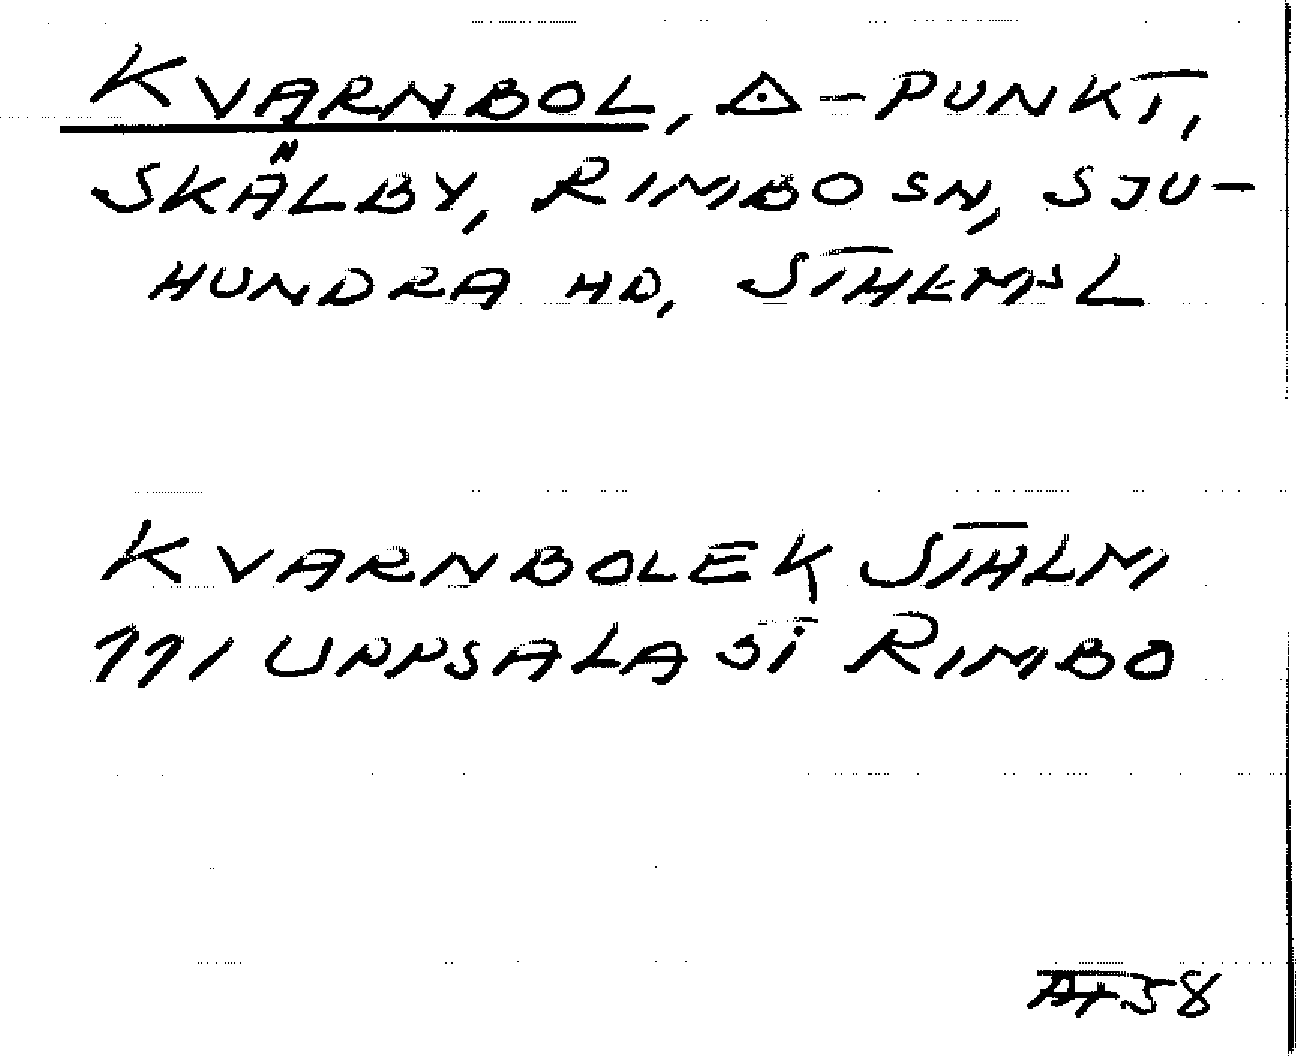 KVARNBOL, △-PUNKT,
SKÄLBY, RIMBO SN, SJU-
HUNDRA HD, STHLMS L
KVARNBOLEK STHLM
111 UPPSALA SI RIMBO
58